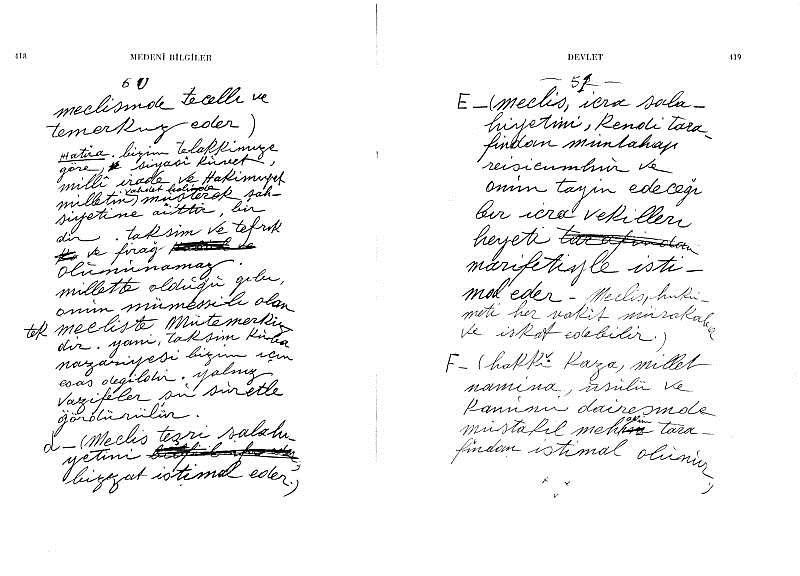 418
MEDENİ BİLGİLER
60
meclisinde tecelli ve
temerküz eder)
Hatıra. bizim telakkimize
göre, siyasî kuvvet,
millî irade ve Hakimiyet
milletin vahdet halinde müşterek şah-
siyetine aittir, bir
dir. taksim ve tefrik
ve firağ
olununamaz.
millette olduğu gibi,
onun mümessili olan
tek mecliste Mütemerkiz
dir. yani, taksim kuva
nazariyesi bizim için
esas değildir. yalnız
vazifeler şu suretle
gördürülür.
d - (Meclis teşri salahi-
yetini
bizzat istimal eder.)
DEVLET
419
- 51 -
E - (meclis, icra sala-
hiyetini, kendi tara-
fından müntahap
reisicumhur ve
onun tayin edeceği
bir icra vekilleri
heyeti tarafından
marifetiyle isti-
mal eder - Meclis, hukû-
meti her vakit mürakabe
ve iskat edebilir.)
F - (hakkı Kaza, millet
namına, usulü ve
kanunu dairesinde
müstakil tara-
fından istimal olunur)